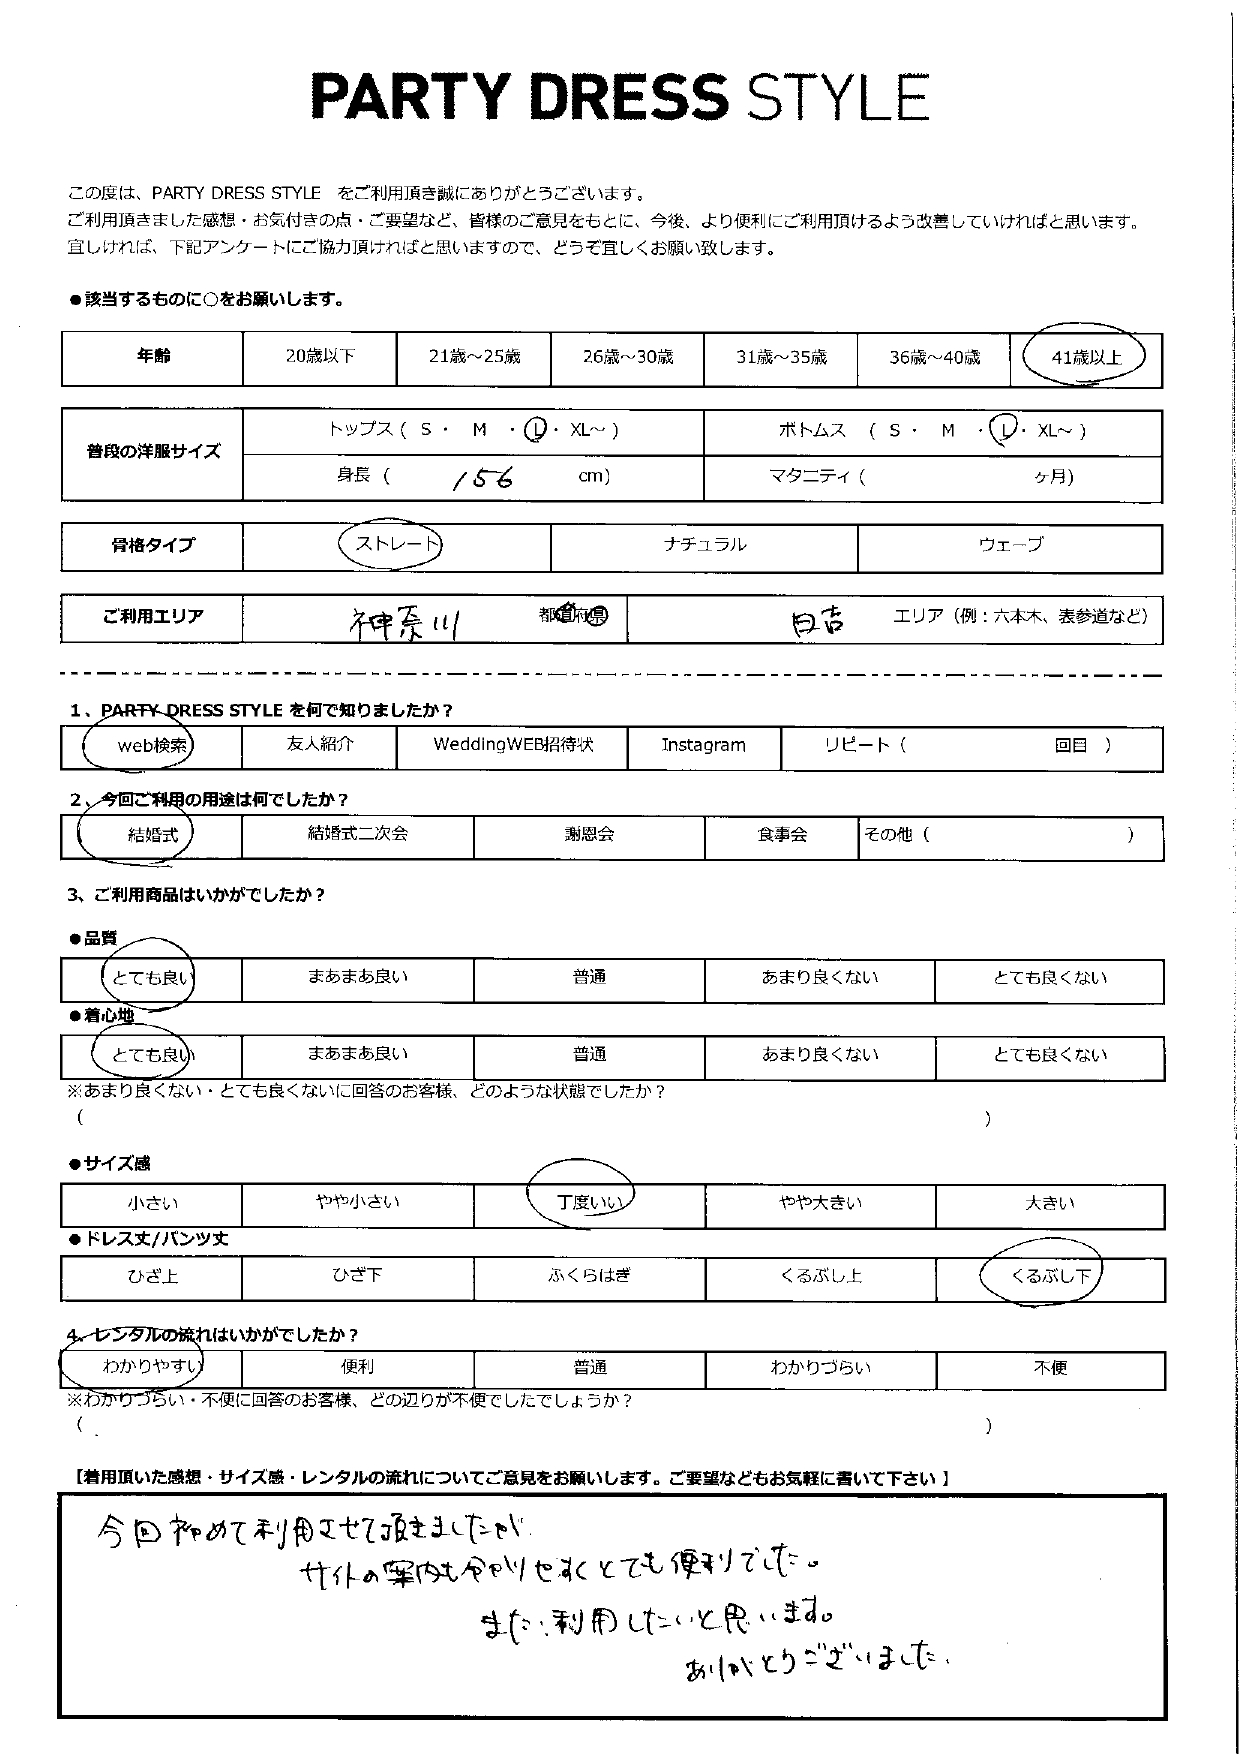 PARTY DRESS STYLE
この度は、PARTY DRESS STYLE をご利用頂き誠にありがとうございます。
ご利用頂きました感想・お気付きの点・ご要望など、皆様のご意見をもとに、今後、より便利にご利用頂けるよう改善していければと思います。
宜しければ、下記アンケートにご協力頂ければと思いますので、どうぞ宜しくお願い致します。
●該当するものに○をお願いします。
年齢 20歳以下 21歳～25歳 26歳～30歳 31歳～35歳 36歳～40歳 41歳以上
普段の洋服サイズ
トップス ( S ・ M ・ L ・ XL～ ) ボトムス ( S ・ M ・ L ・ XL～ )
身長 ( 156 cm) マタニティ ( ヶ月)
骨格タイプ ストレート ナチュラル ウェーブ
ご利用エリア 神奈川 都道府県 日吉 エリア（例：六本木、表参道など）
1、PARTY DRESS STYLE を何で知りましたか？
web検索 友人紹介 WeddingWEB招待状 Instagram リピート ( 回目 )
2、今回ご利用の用途は何でしたか？
結婚式 結婚式二次会 謝恩会 食事会 その他 ( )
3、ご利用商品はいかがでしたか？
●品質
とても良い まあまあ良い 普通 あまり良くない とても良くない
●着心地
とても良い まあまあ良い 普通 あまり良くない とても良くない
※あまり良くない・とても良くないに回答のお客様、どのような状態でしたか？
( )
●サイズ感
小さい やや小さい 丁度いい やや大きい 大きい
●ドレス丈/パンツ丈
ひざ上 ひざ下 ふくらはぎ くるぶし上 くるぶし下
4、レンタルの流れはいかがでしたか？
わかりやすい 便利 普通 わかりづらい 不便
※わかりづらい・不便に回答のお客様、どの辺りが不便でしたでしょうか？
( )
【着用頂いた感想・サイズ感・レンタルの流れについてご意見をお願いします。ご要望などもお気軽に書いて下さい】
今回初めて利用させて頂きましたが
サイトの案内も分かりやすくとても便利でした。
また、利用したいと思います。
ありがとうございました。